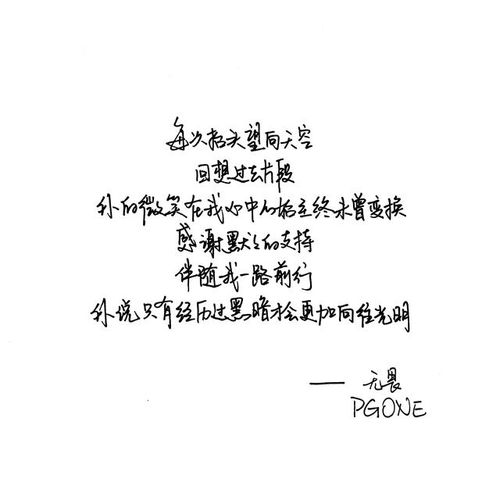 每次抬头望向天空
回想过去片段
你的微笑在我心中的括立终未曾变换
感谢默默的支持
伴随我一路前行
你说只有经历过黑暗才会更加向往光明
—— 无畏
PGONE